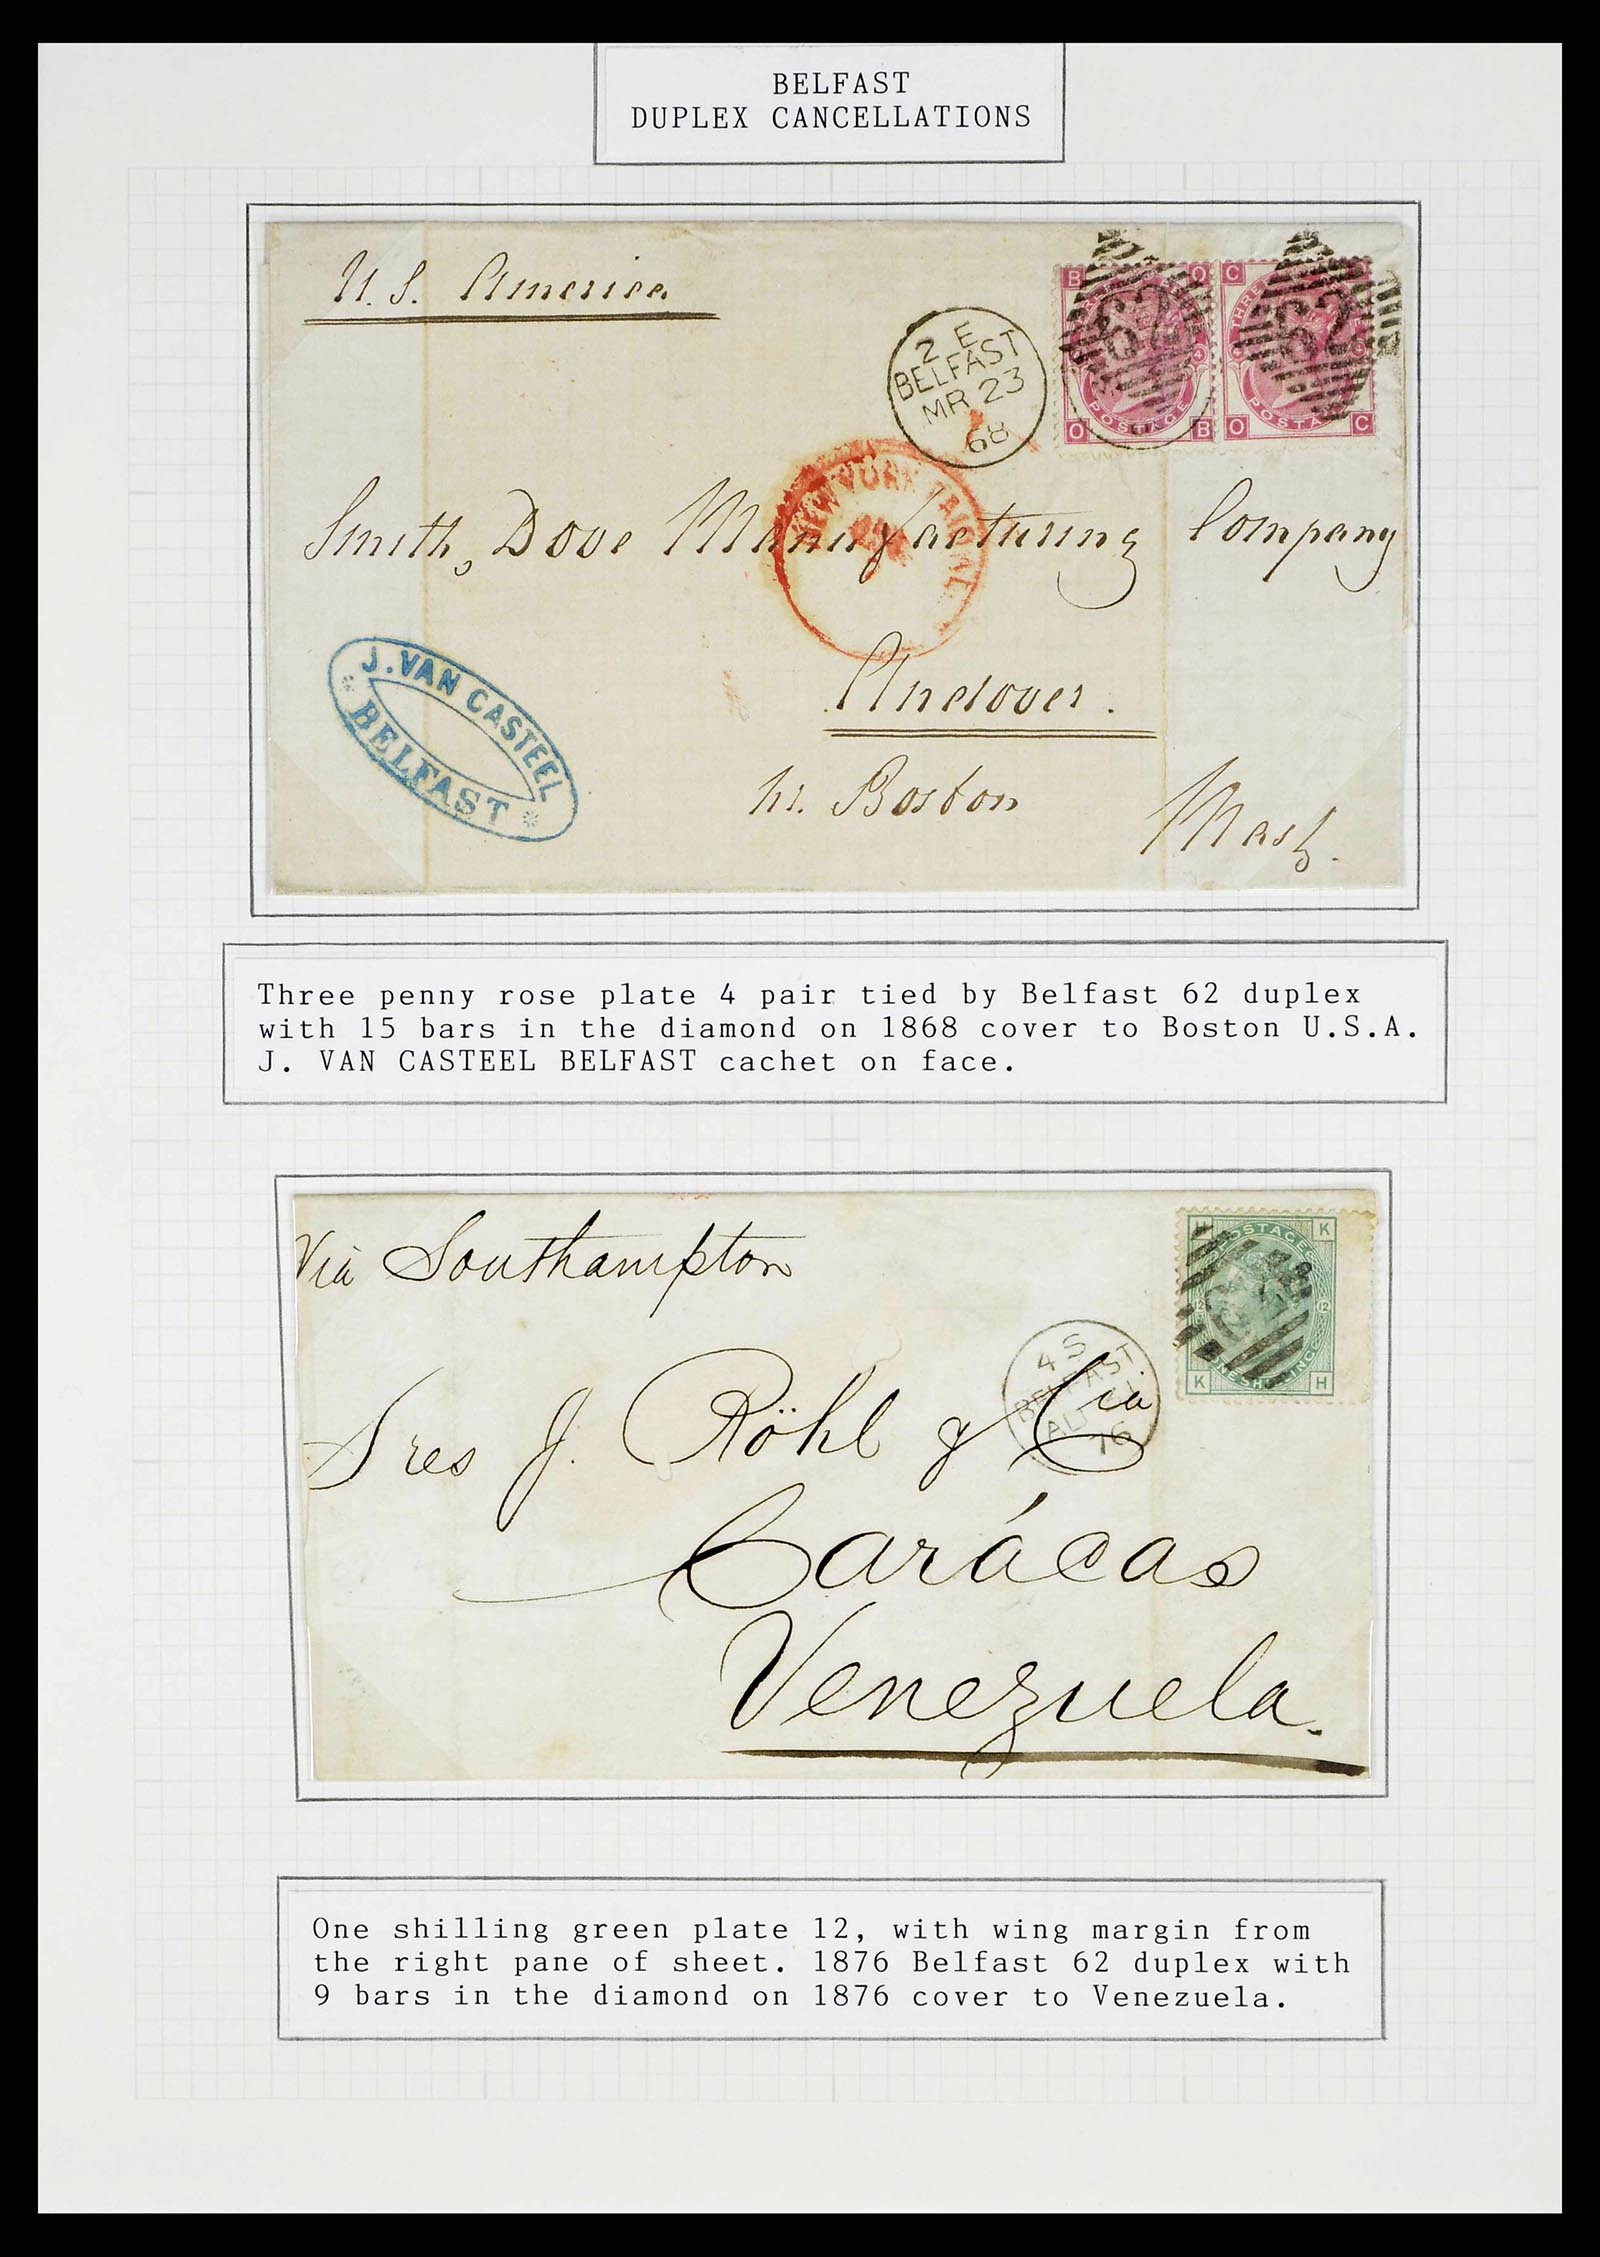 BELFAST
DUPLEX CANCELLATIONS
U.S. America
2 E
BELFAST
MR 23
68
B O
62
4
POSTAGE
O B
C O
THREE
62
POSTA
O C
NEW YORK
Smith, Dove Manufacturing Company
Andover.
nr. Boston
Mass.
J. VAN CASTEEL
* BELFAST *
Three penny rose plate 4 pair tied by Belfast 62 duplex
with 15 bars in the diamond on 1868 cover to Boston U.S.A.
J. VAN CASTEEL BELFAST cachet on face.
Via Southampton
H K
POSTAGE
12 12
ONE SHILLING
K H
4 S
BELFAST
AU
76
Sres J. Röhl y Cia
Carácas
Venezuela.
One shilling green plate 12, with wing margin from
the right pane of sheet. 1876 Belfast 62 duplex with
9 bars in the diamond on 1876 cover to Venezuela.